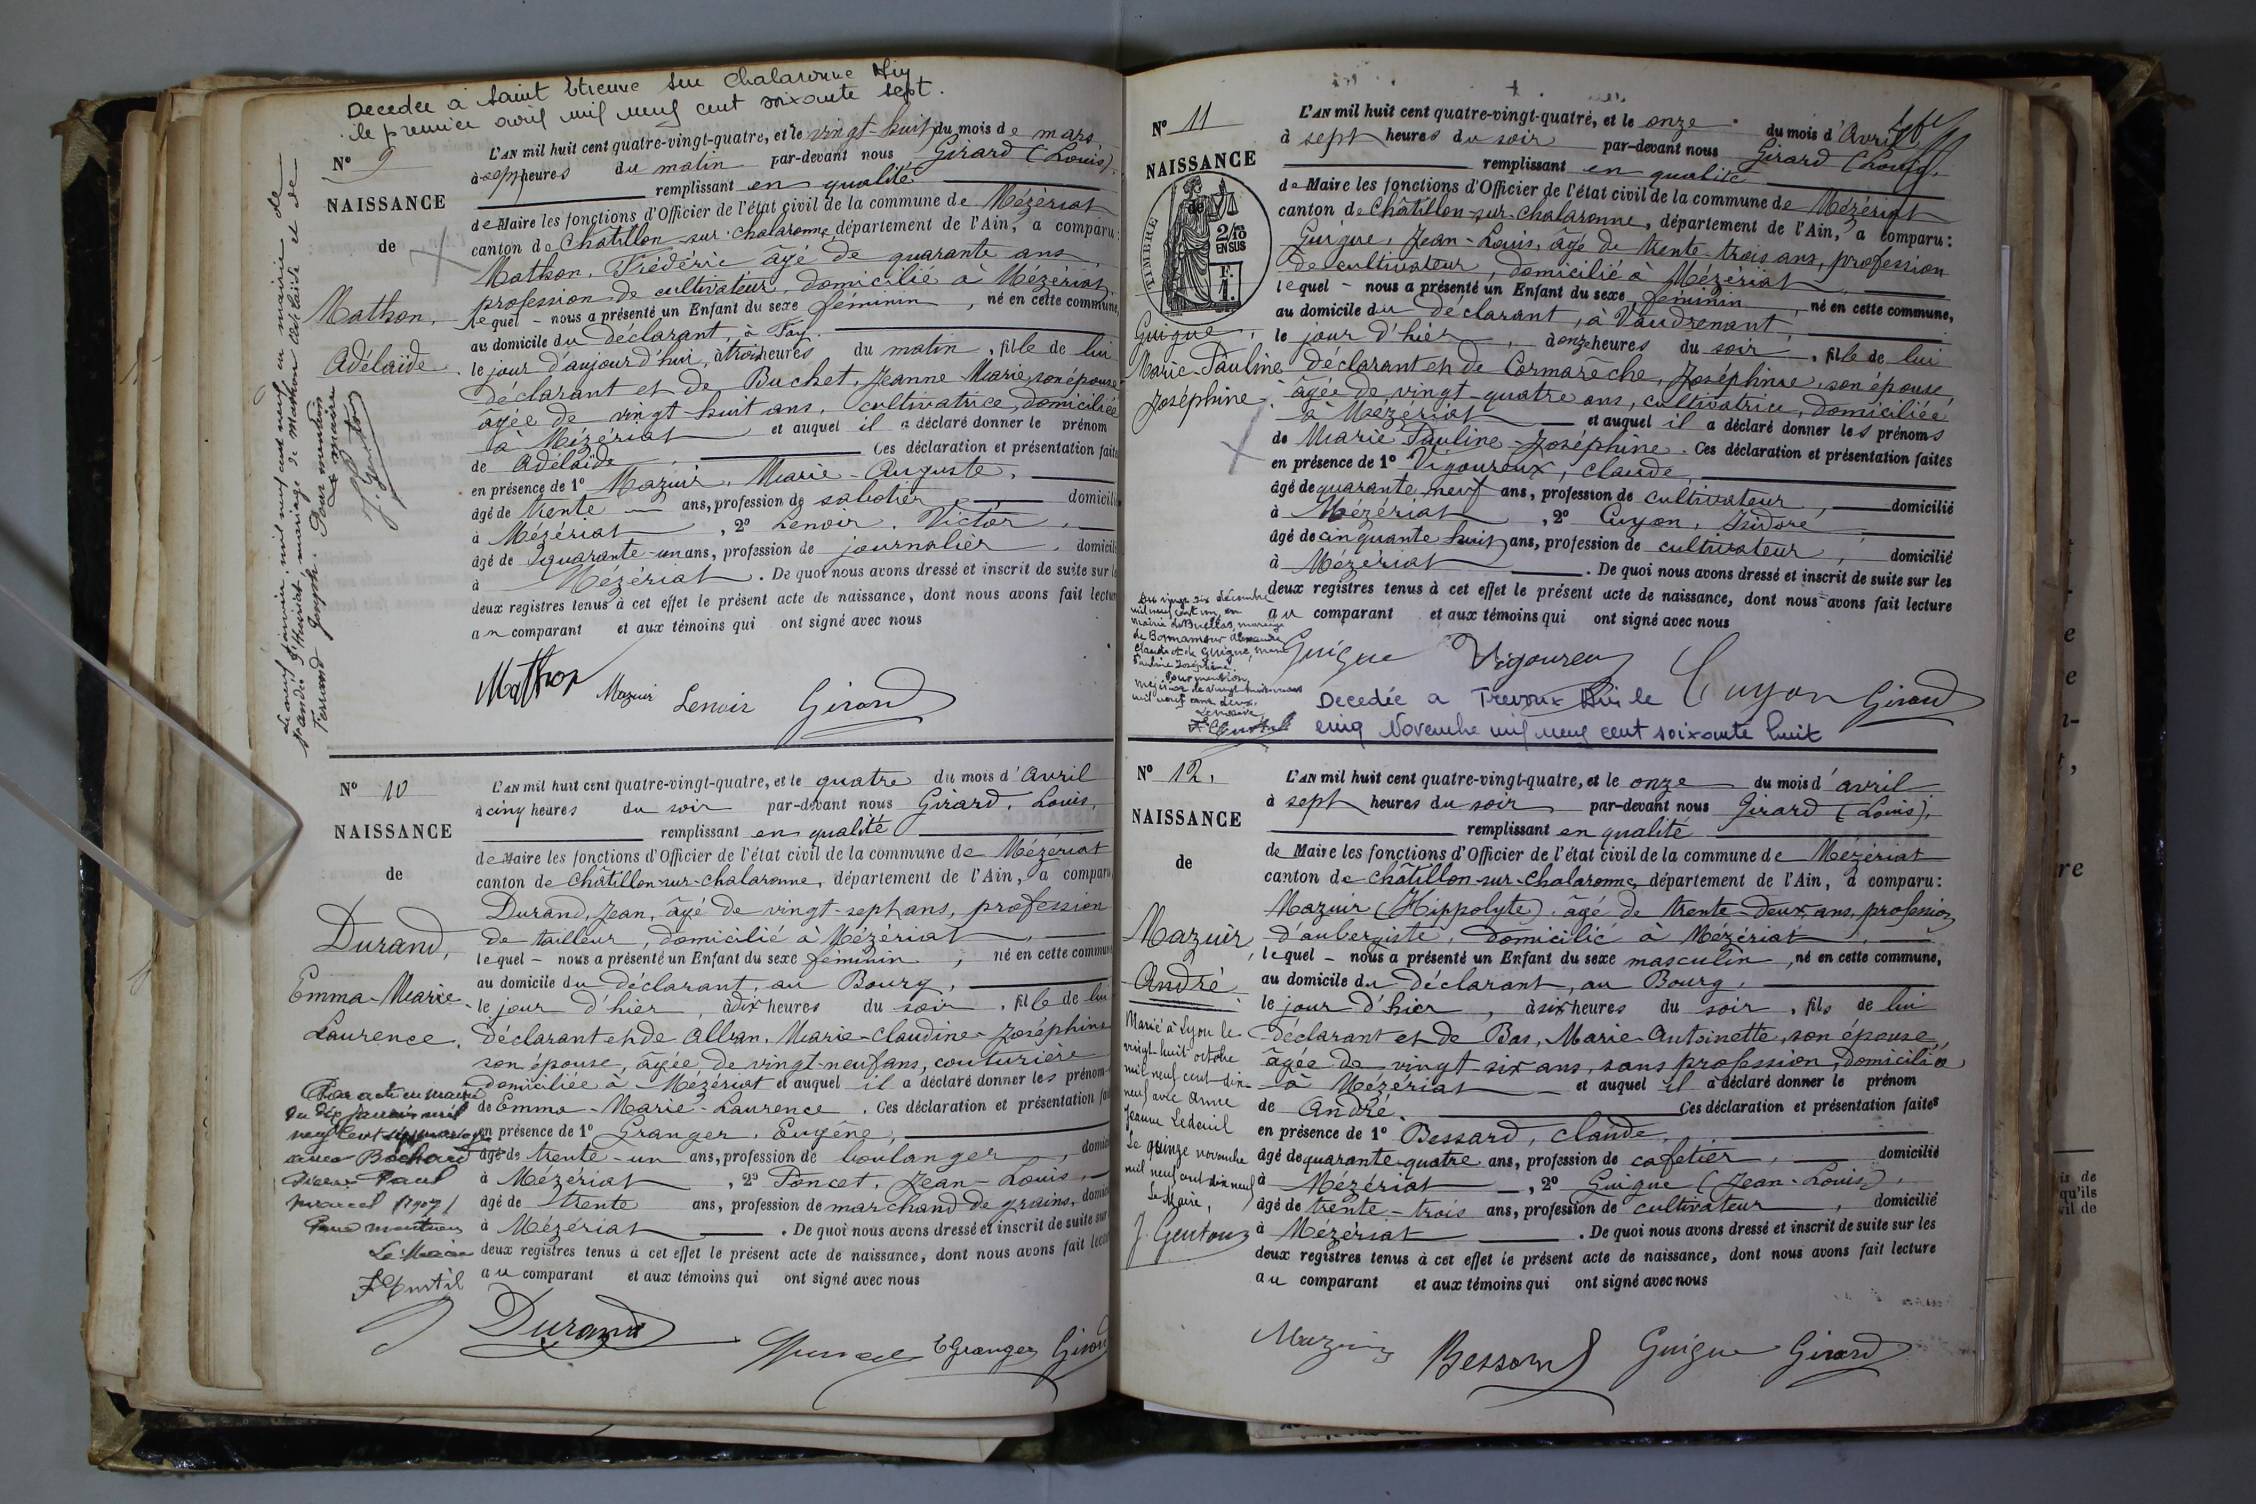 Decedée à Saint Etienne sur Chalaronne Ain
le premier avril mil neuf cent soixante sept.
N° 9
NAISSANCE
de
Mathon,
Adélaïde.
L'AN mil huit cent quatre-vingt-quatre, et le vingt-huit du mois de mars
à sept heures du matin par-devant nous Girard (Louis).
remplissant en qualité
de Maire les fonctions d'Officier de l'état civil de la commune de Mézériat
canton de Châtillon-sur-Chalaronne, département de l'Ain, a comparu:
Mathon, Frédéric âgé de quarante ans,
profession de cultivateur, domicilié à Mézériat,
lequel – nous a présenté un Enfant du sexe féminin, né en cette commune,
au domicile du déclarant, à
le jour d'aujourd'hui, à trois heures du matin, fille de lui
déclarant et de Buchet, Jeanne Marie, son épouse
âgée de vingt-huit ans, cultivatrice, domiciliée
à Mézériat et auquel il a déclaré donner le prénom
de Adélaïde. Ces déclaration et présentation faites
en présence de 1° Mazuir, Marie-Auguste,
âgé de trente ans, profession de sabotier, domicilié
à Mézériat, 2° Lenoir, Victor,
âgé de quarante-un ans, profession de journalier, domicilié
à Mézériat. De quoi nous avons dressé et inscrit de suite sur les
deux registres tenus à cet effet le présent acte de naissance, dont nous avons fait lecture
au comparant et aux témoins qui ont signé avec nous
Mathon Mazuir Lenoir Girard
Le neuf janvier mil neuf cent neuf en mairie de
mariage de Mathon Adélaïde et de
Ferrand Joseph. Pour mention
Le maire
N° 10
NAISSANCE
de
Durand,
Emma-Marie
Laurence.
L'AN mil huit cent quatre-vingt-quatre, et le quatre du mois d'avril
à cinq heures du soir par-devant nous Girard, Louis,
remplissant en qualité
de Maire les fonctions d'Officier de l'état civil de la commune de Mézériat
canton de Châtillon-sur-Chalaronne, département de l'Ain, a comparu
Durand, Jean, âgé de vingt-sept ans, profession
de tailleur, domicilié à Mézériat,
lequel – nous a présenté un Enfant du sexe féminin, né en cette commune
au domicile du déclarant, au Bourg,
le jour d'hier, à dix heures du soir, fille de lui
déclarant et de Allran, Marie-Claudine-Joséphine
son épouse, âgée de vingt-neuf ans, couturière
domiciliée à Mézériat et auquel il a déclaré donner les prénoms
de Emma-Marie-Laurence. Ces déclaration et présentation
en présence de 1° Granger, Eugène,
âgé de trente-un ans, profession de boulanger,
à Mézériat, 2° Poncet, Jean-Louis,
âgé de trente ans, profession de marchand de grains,
à Mézériat. De quoi nous avons dressé et inscrit de suite sur
deux registres tenus à cet effet le présent acte de naissance, dont nous avons fait
au comparant et aux témoins qui ont signé avec nous
Durand E Granger Girard
Par acte en mairie
du dix janvier mil
neuf cent sept mariage
avec Bochard
Paul
Marcel (1907)
Pour mention
Le Maire
N° 11
NAISSANCE
de
TIMBRE
2/10
EN SUS
F.
1.
Guigue,
Marie-Pauline
Joséphine.
L'AN mil huit cent quatre-vingt-quatre, et le onze du mois d'Avril
à sept heures du soir par-devant nous Girard (Louis).
remplissant en qualité
de Maire les fonctions d'Officier de l'état civil de la commune de Mézériat
canton de Châtillon-sur-Chalaronne, département de l'Ain, a comparu:
Guigue, Jean-Louis, âgé de trente-trois ans, profession
de cultivateur, domicilié à Mézériat,
lequel – nous a présenté un Enfant du sexe féminin, né en cette commune,
au domicile du déclarant, à Vaudrenant,
le jour d'hier, à onze heures du soir, fille de lui
déclarant et de Cormarèche, Joséphine, son épouse,
âgée de vingt-quatre ans, cultivatrice, domiciliée
à Mézériat et auquel il a déclaré donner les prénoms
de Marie Pauline-Joséphine. Ces déclaration et présentation faites
en présence de 1° Vigoureux, Claude,
âgé de quarante neuf ans, profession de cultivateur, domicilié
à Mézériat, 2° Cuyon, Isidore
âgé de cinquante huit ans, profession de cultivateur, domicilié
à Mézériat. De quoi nous avons dressé et inscrit de suite sur les
deux registres tenus à cet effet le présent acte de naissance, dont nous avons fait lecture
au comparant et aux témoins qui ont signé avec nous
Guigue Vigoureux Cuyon Girard
Decedée a Trevoux Ain le
cinq Novembre mil neuf cent soixante huit
vingt six décembre
mil neuf cent un, en
mairie de Buellas, mariage
de Bonnamour
Claude et de Guigue, Marie
Pauline Joséphine.
Pour mention
Mézériat le vingt-huit mars
mil neuf cent deux.
Le Maire
N° 12.
NAISSANCE
de
Mazuir,
André
L'AN mil huit cent quatre-vingt-quatre, et le onze du mois d'avril
à sept heures du soir par-devant nous Girard (Louis),
remplissant en qualité
de Maire les fonctions d'Officier de l'état civil de la commune de Mézériat
canton de Châtillon-sur-Chalaronne, département de l'Ain, a comparu:
Mazuir (Hippolyte), âgé de trente-deux ans, profession
d'aubergiste, domicilié à Mézériat,
lequel – nous a présenté un Enfant du sexe masculin, né en cette commune,
au domicile du déclarant, au Bourg,
le jour d'hier, à six heures du soir, fils de lui
déclarant et de Bas, Marie-Antoinette, son épouse,
âgée de vingt six ans, sans profession, domiciliée
à Mézériat et auquel il a déclaré donner le prénom
de André. Ces déclaration et présentation faites
en présence de 1° Bessard, Claude,
âgé de quarante-quatre ans, profession de cafetier, domicilié
à Mézériat, 2° Guigue (Jean-Louis),
âgé de trente-trois ans, profession de cultivateur, domicilié
à Mézériat. De quoi nous avons dressé et inscrit de suite sur les
deux registres tenus à cet effet le présent acte de naissance, dont nous avons fait lecture
au comparant et aux témoins qui ont signé avec nous
Mazuir Bessard Guigue Girard
Marié à Lyon le
vingt-huit octobre
mil neuf cent dix-
neuf avec Anne
Jeanne Ledeuil
Le quinze novembre
mil neuf cent dix neuf
Le Maire,
J. Genton